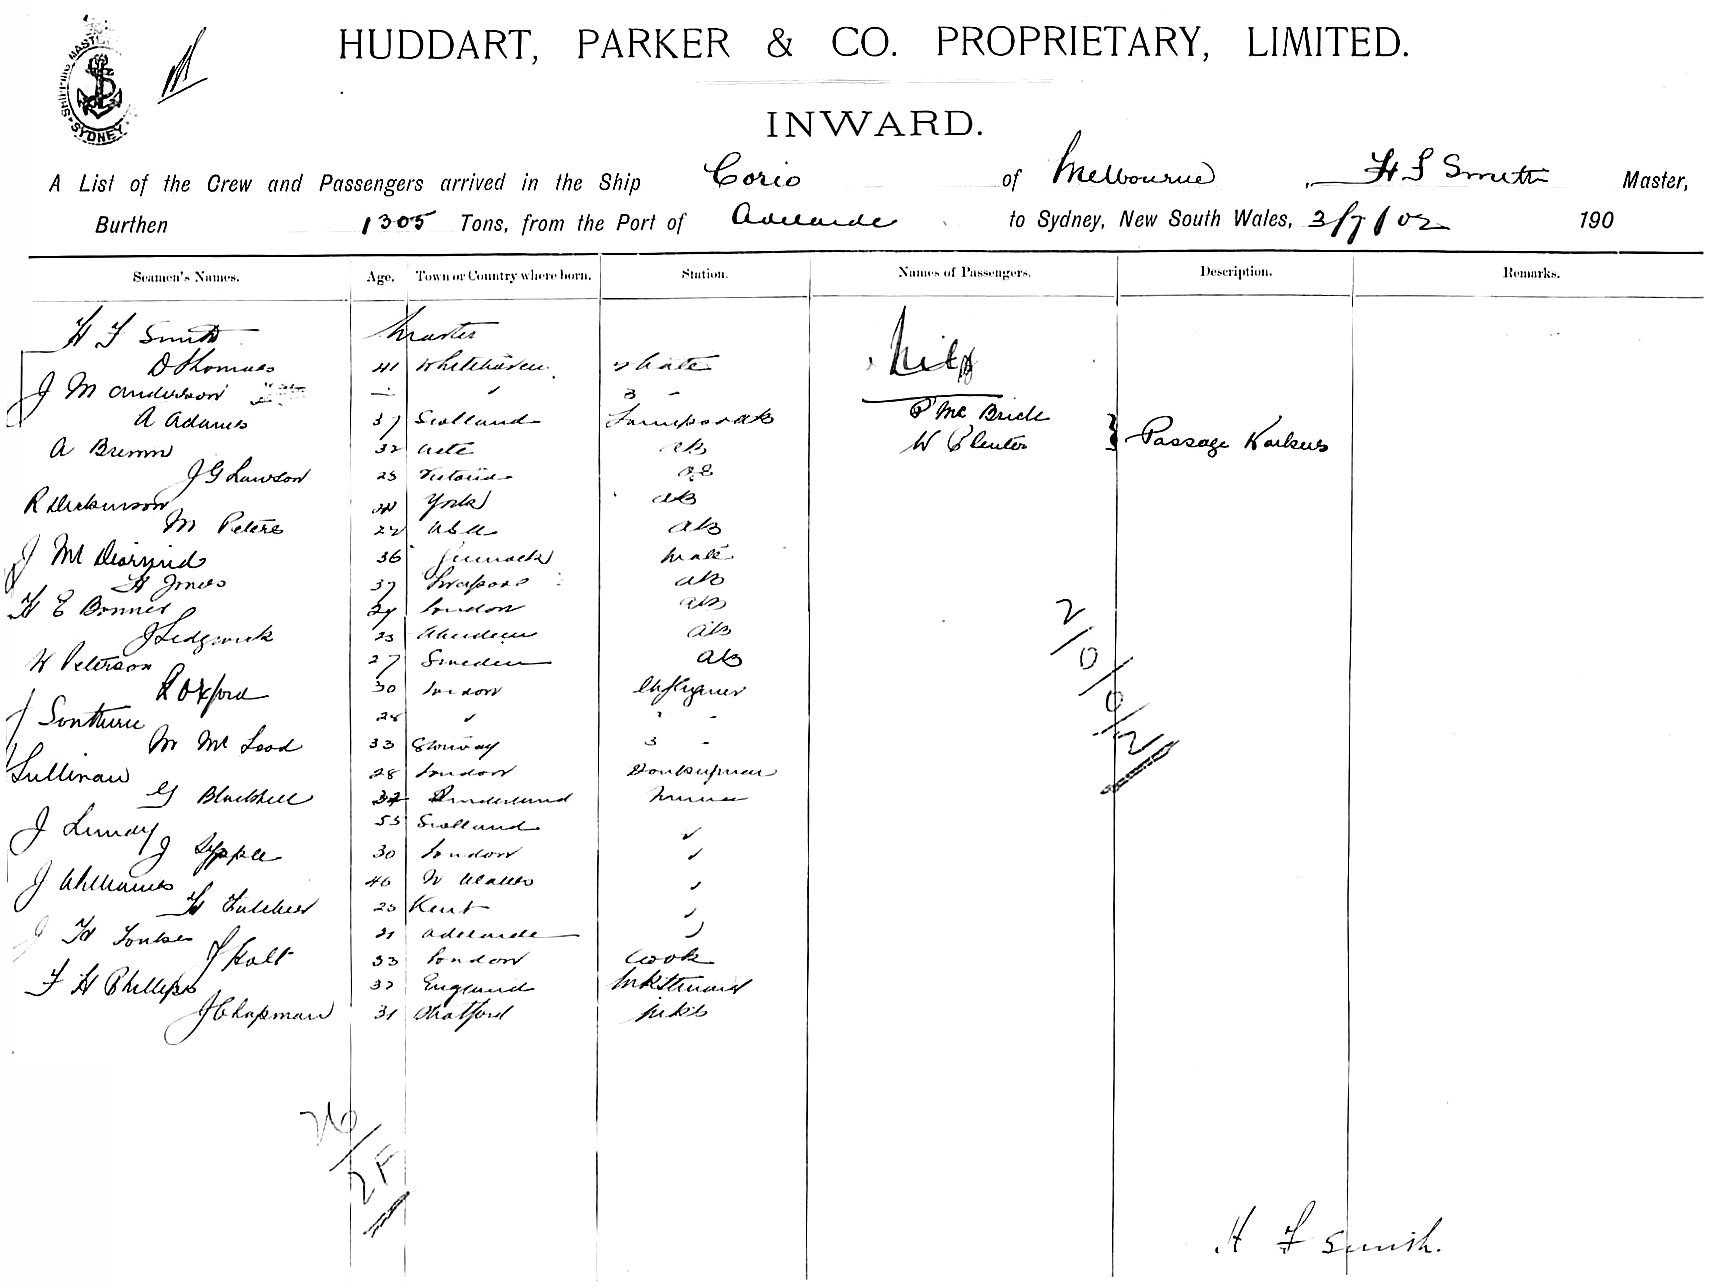 SHIPPING MASTER
SYDNEY
HUDDART, PARKER & CO. PROPRIETARY, LIMITED.
INWARD.
A List of the Crew and Passengers arrived in the Ship Corio of Melbourne, H F Smith Master,
Burthen 1305 Tons, from the Port of Adelaide to Sydney, New South Wales, 3/7/02 190
Seamen's Names. Age. Town or Country where born. Station. Names of Passengers. Description. Remarks.
H F Smith Master Nil
D Thomas 41 Whitehaven 2 Mate
J M Anderson — " 3 -
A Adams 37 Scotland Lamps & ab P Mc Brick
A Bremn 32 ab W Clenton Passage Workers
J G Lawson 25 Victoria ab
R Dickinson York ab
M Peters 22 USA ab
J Mc Diarmid 36 Mate
H Jones 37 Liverpool ab
H E Bonner 29 London ab
J Sedgwick 23 Aberdeen ab
W Peterson 27 Sweden ab
R Oxford 30 London
J Southern 28 "
M Mc Leod 33 3 -
Sullivan 28 London Donkeyman
G Blackhall 32 Sunderland
J Lundy 55 Scotland
J 30 London
J Williams 46 N Wales
H 23 Kent
J H Foulkes 21 Adelaide
J Holt 33 London Cook
F H Phillips 32 England
J Chapman 31 Stratford
2/0/0/2
26/2F
H F Smith.